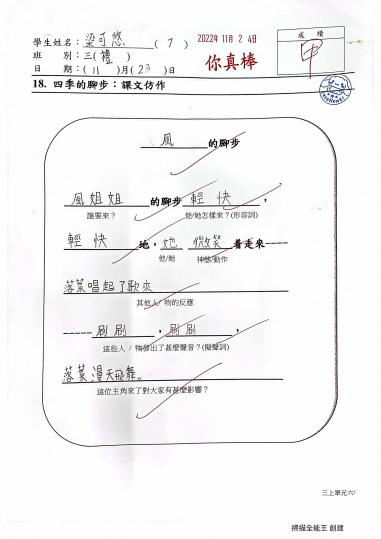 學生姓名：梁可悠 (7)
2022年11月24日
成績
班別：三(禮)
甲
日期：(11)月(23)日
你真棒
18. 四季的腳步：課文仿作
風的腳步
風姐姐的腳步輕快，
誰要來？ 他/她怎樣來？(形容詞)
輕快地，她微笑着走來----
他/她 神態/動作
落葉唱起了歌來
其他人/物的反應
-----刷刷，刷刷，
這些人/物發出了甚麼聲音？(擬聲詞)
落葉漫天飛舞。
這位主角來了對大家有甚麼影響？
三上單元六/
掃描全能王 創建